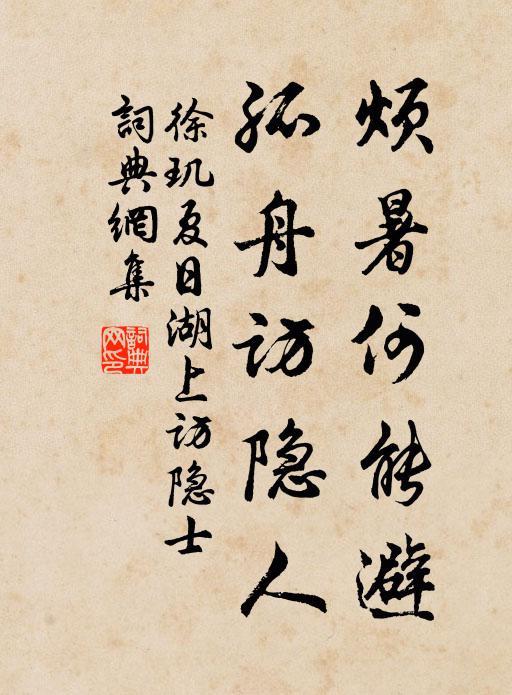 烦暑何能避
孤舟访隐人
徐玑夏日湖上访隐士
詞典網集
詞典
网印